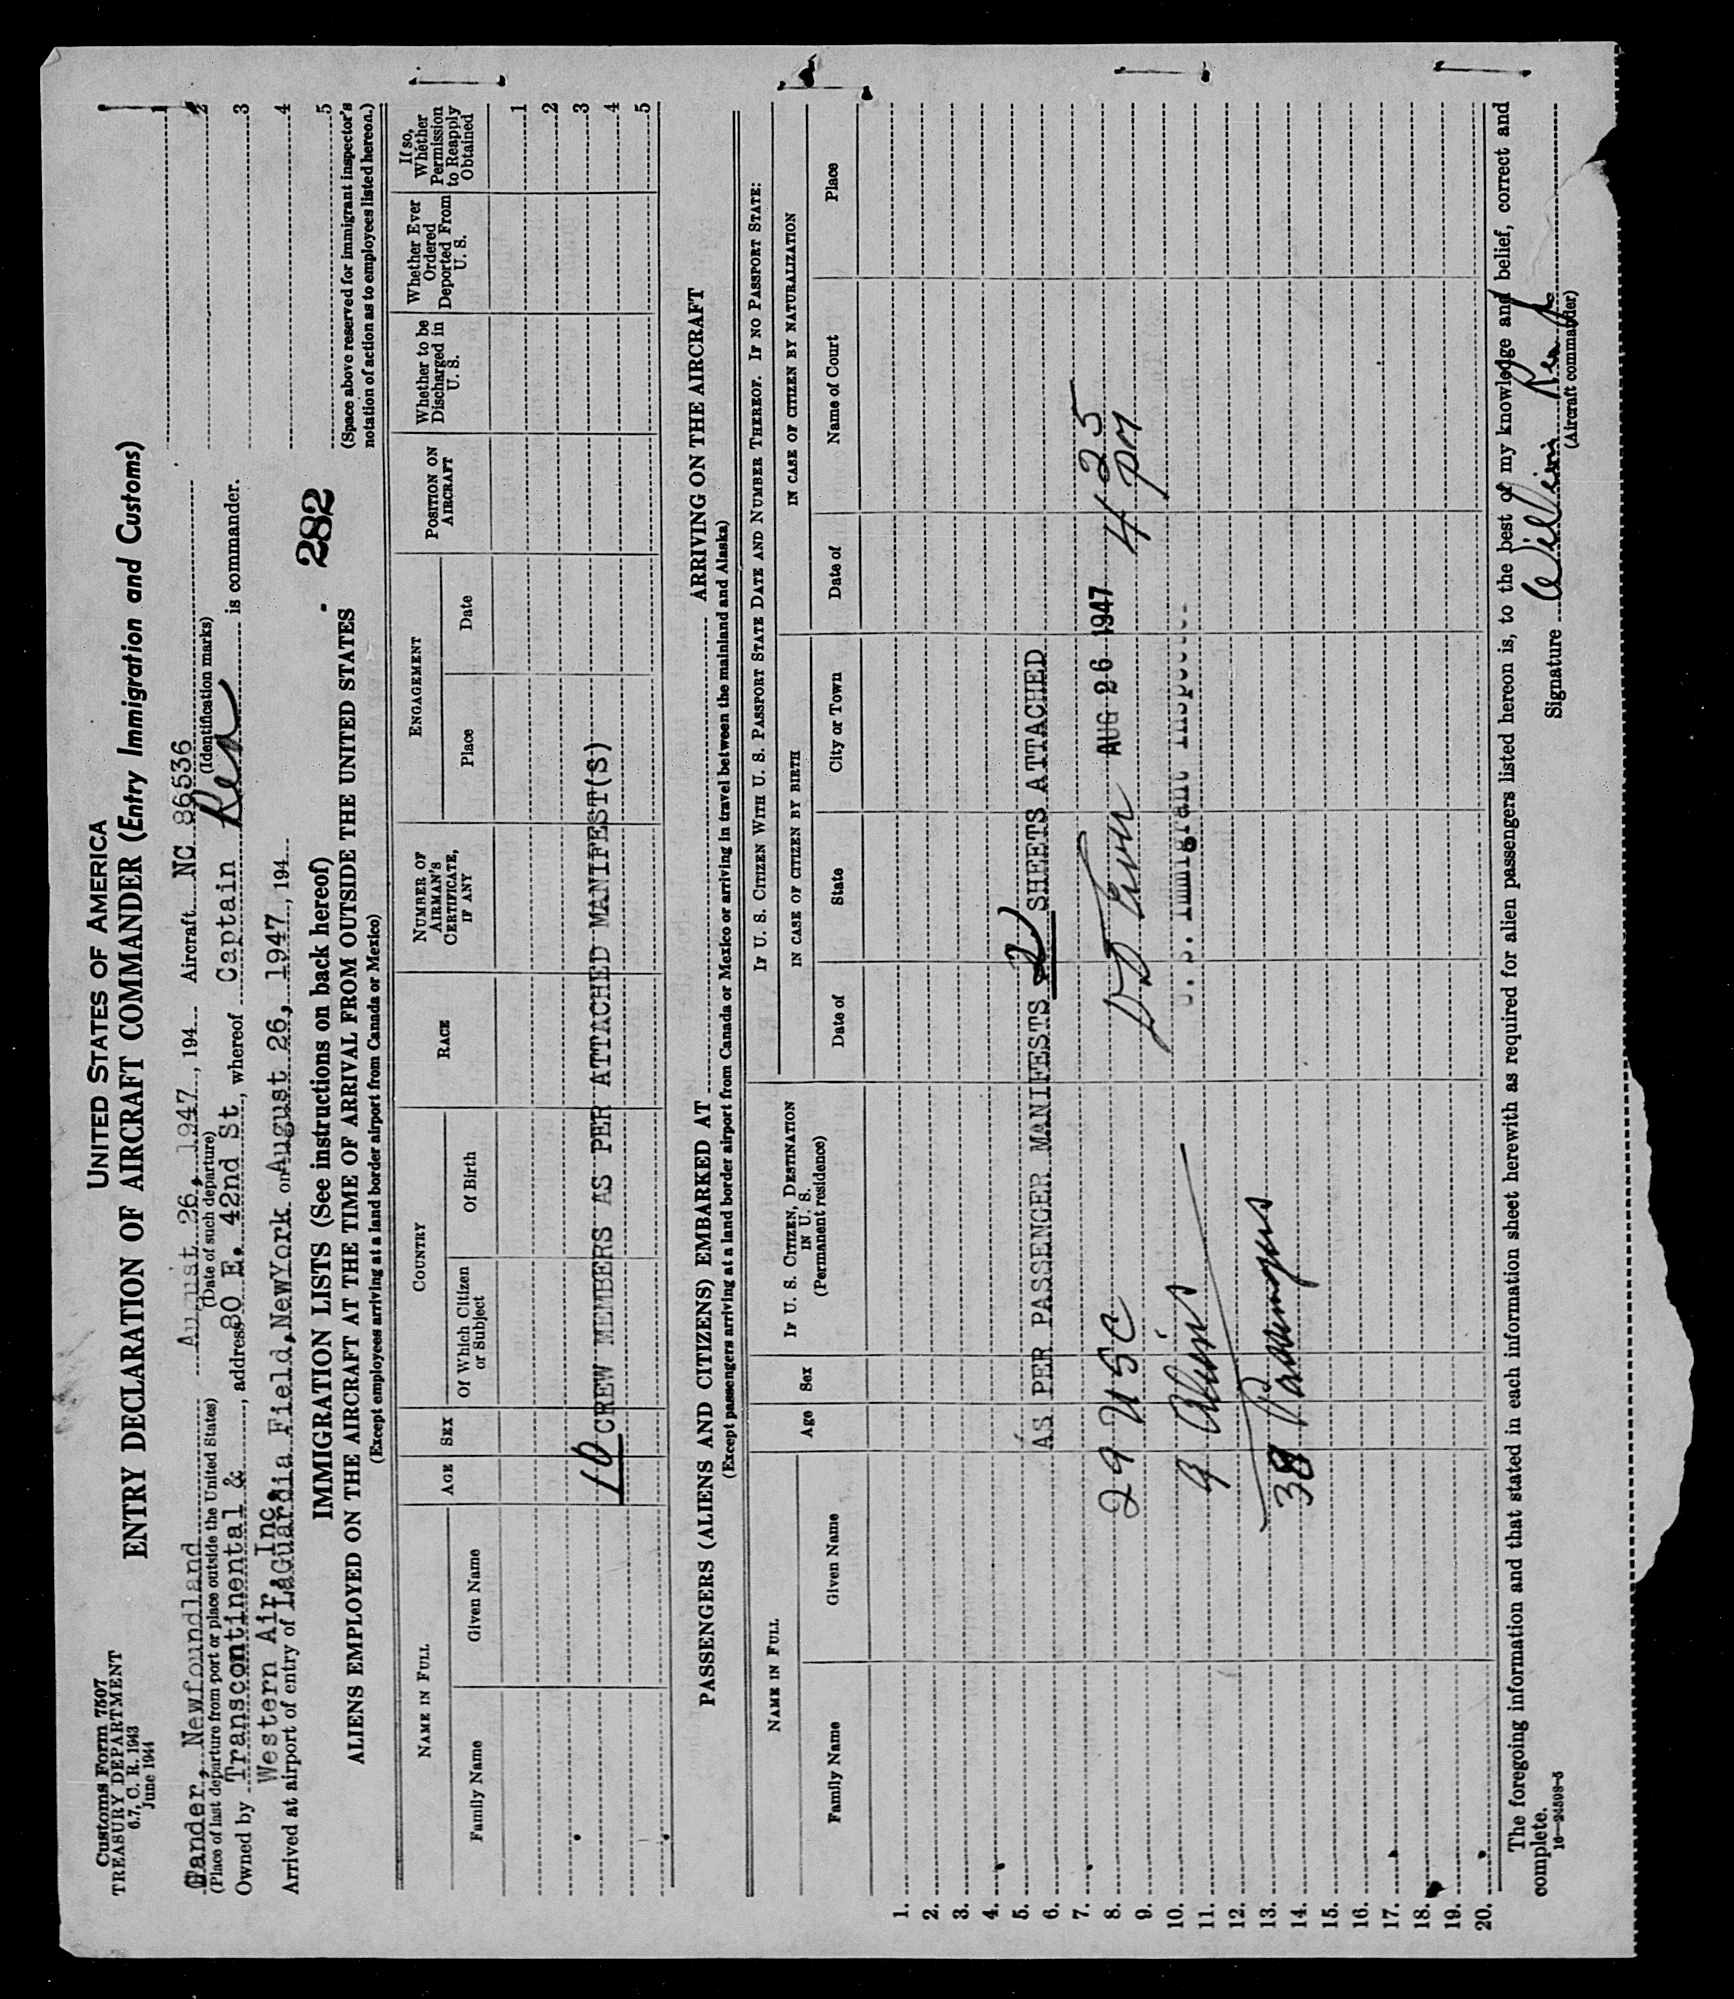 Customs Form 7507
TREASURY DEPARTMENT
6.7, C. R. 1943
June 1944
UNITED STATES OF AMERICA
ENTRY DECLARATION OF AIRCRAFT COMMANDER (Entry Immigration and Customs)
Gander, Newfoundland August 26, 1947, 194 Aircraft NC 86536
(Place of last departure from port or place outside the United States) (Date of such departure) (Identification marks)
Owned by Transcontinental & , address 80 E. 42nd St, whereof Captain Rea is commander.
Western Air, Inc.
Arrived at airport of entry of LaGuardia Field, NewYork on August 26, 1947, 194
1
2
3
4
5
(Space above reserved for immigrant inspector's
notation of action as to employees listed hereon.)
282
IMMIGRATION LISTS (See instructions on back hereof)
ALIENS EMPLOYED ON THE AIRCRAFT AT THE TIME OF ARRIVAL FROM OUTSIDE THE UNITED STATES
(Except employees arriving at a land border airport from Canada or Mexico)
NAME IN FULL
Family Name Given Name
AGE
SEX
COUNTRY
Of Which Citizen or Subject Of Birth
RACE
NUMBER OF AIRMAN'S CERTIFICATE, IF ANY
ENGAGEMENT
Place Date
POSITION ON AIRCRAFT
Whether to be Discharged in U. S.
Whether Ever Ordered Deported From U. S.
If so, Whether Permission to Reapply Obtained
1
2
3
4
5
10 CREW MEMBERS AS PER ATTACHED MANIFEST(S)
PASSENGERS (ALIENS AND CITIZENS) EMBARKED AT ARRIVING ON THE AIRCRAFT
(Except passengers arriving at a land border airport from Canada or Mexico or arriving in travel between the mainland and Alaska)
NAME IN FULL
Family Name Given Name
Age
Sex
IF U. S. CITIZEN, DESTINATION IN U. S.
(Permanent residence)
IF U. S. CITIZEN WITH U. S. PASSPORT STATE DATE AND NUMBER THEREOF. IF NO PASSPORT STATE:
IN CASE OF CITIZEN BY BIRTH
Date of State City or Town
IN CASE OF CITIZEN BY NATURALIZATION
Date of Name of Court Place
1.
2.
3.
4.
5.
6.
7.
8.
9.
10.
11.
12.
13.
14.
15.
16.
17.
18.
19.
20.
AS PER PASSENGER MANIFESTS 2 SHEETS ATTACHED
29 USC
9 Aliens
38 Passengers
AUG 26 1947
4 25 PM
U. S. Immigrant Inspector
The foregoing information and that stated in each information sheet herewith as required for alien passengers listed hereon is, to the best of my knowledge and belief, correct and
complete.
16—24598-5
Signature William Rea
(Aircraft commander)